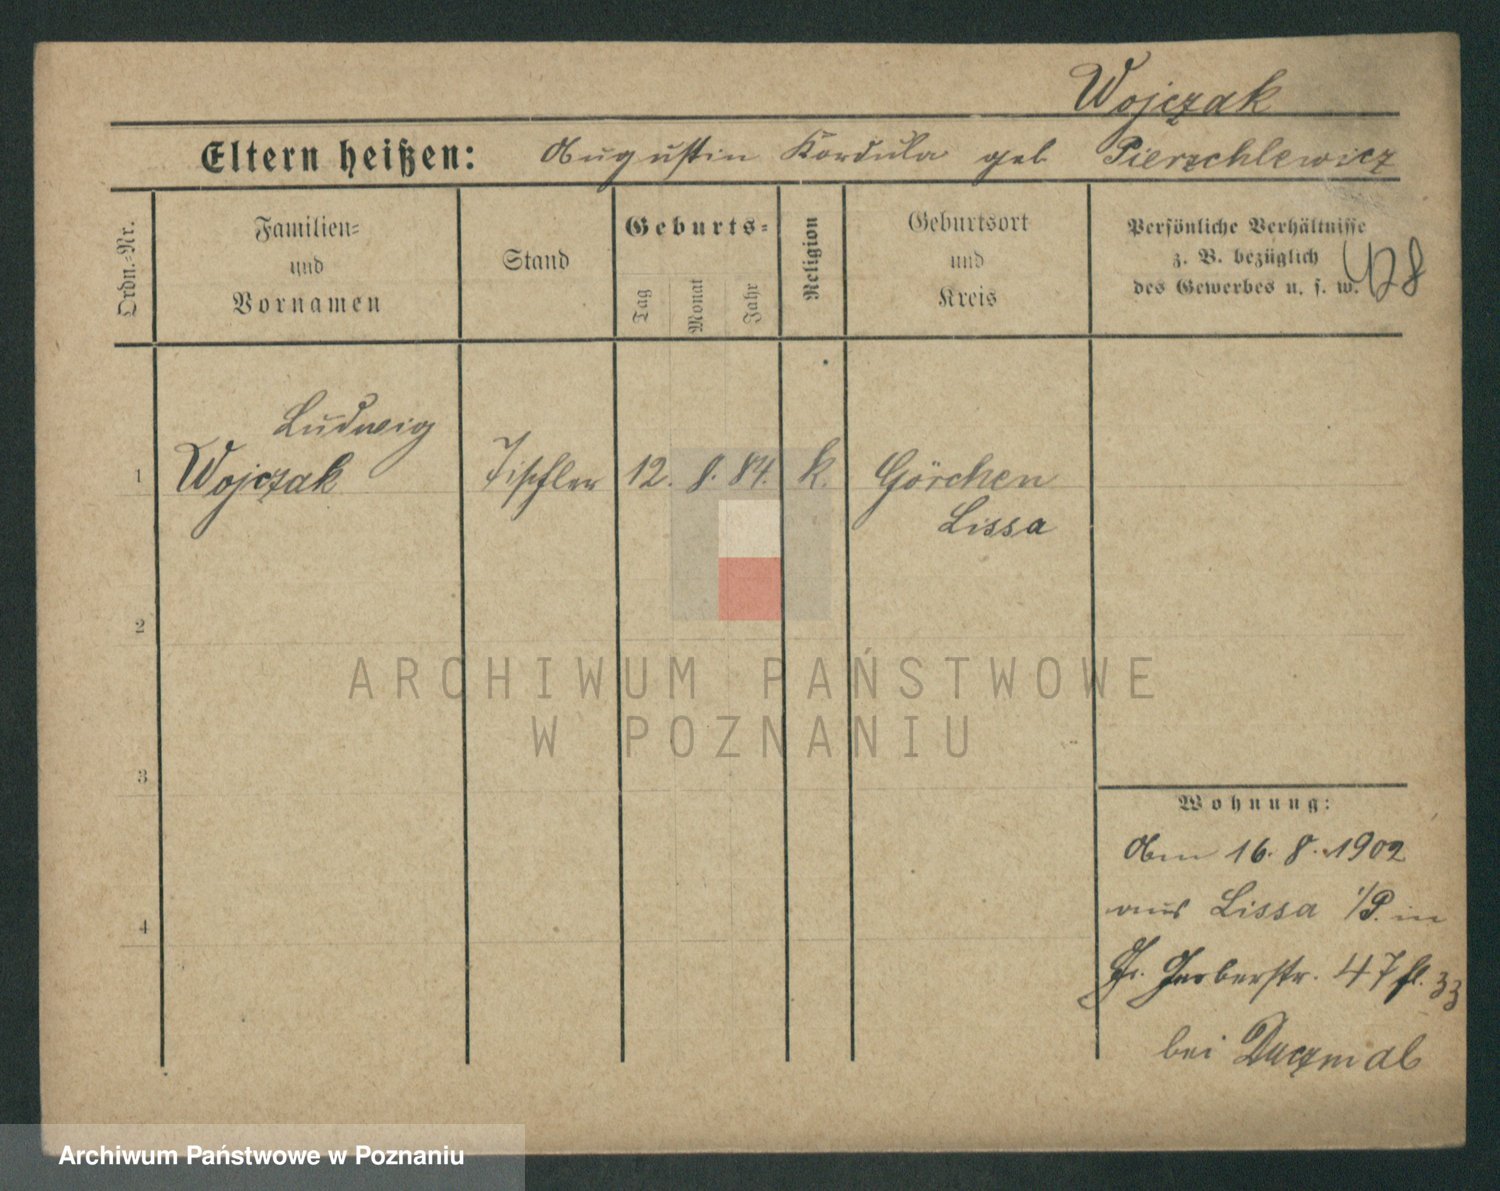 Wojczak
Eltern heißen: Augustin Kordula geb Pierzchlewicz
Ordn.-Nr.
Familien-
und
Vornamen
Stand
Geburts-
Tag
Monat
Jahr
Religion
Geburtsort
und
Kreis
Persönliche Verhältnisse
z. B. bezüglich
des Gewerbes u. s. w.
Ludwig
1 Wojczak Tischler 12. 8. 84. k. Görchen
Lissa
2
ARCHIWUM PAŃSTWOWE
W POZNANIU
3
Wohnung:
Am 16. 8. 1902
aus Lissa i/P. in
4
Gr. Gerberstr. 47
bei Daczmal
Archiwum Państwowe w Poznaniu